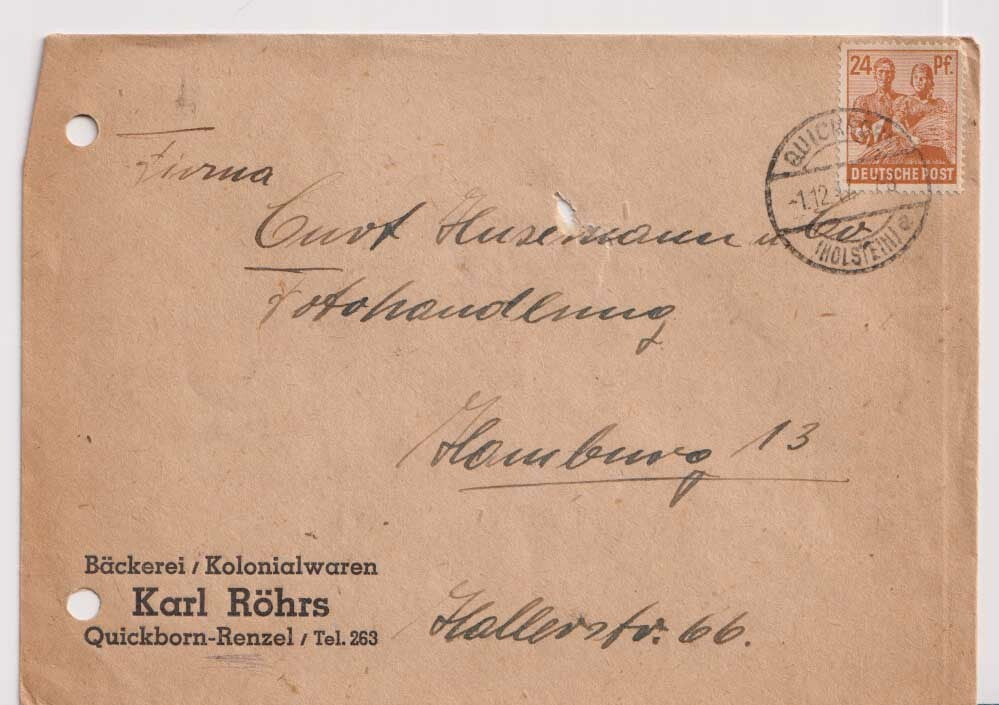 24 Pf.
DEUTSCHE POST
QUICKBORN
-1.12.47
(HOLSTEIN) a
Firma
Curt Husemann u. Co
Fotohandlung
Hamburg 13
Hallerstr. 66.
Bäckerei / Kolonialwaren
Karl Röhrs
Quickborn-Renzel / Tel. 263